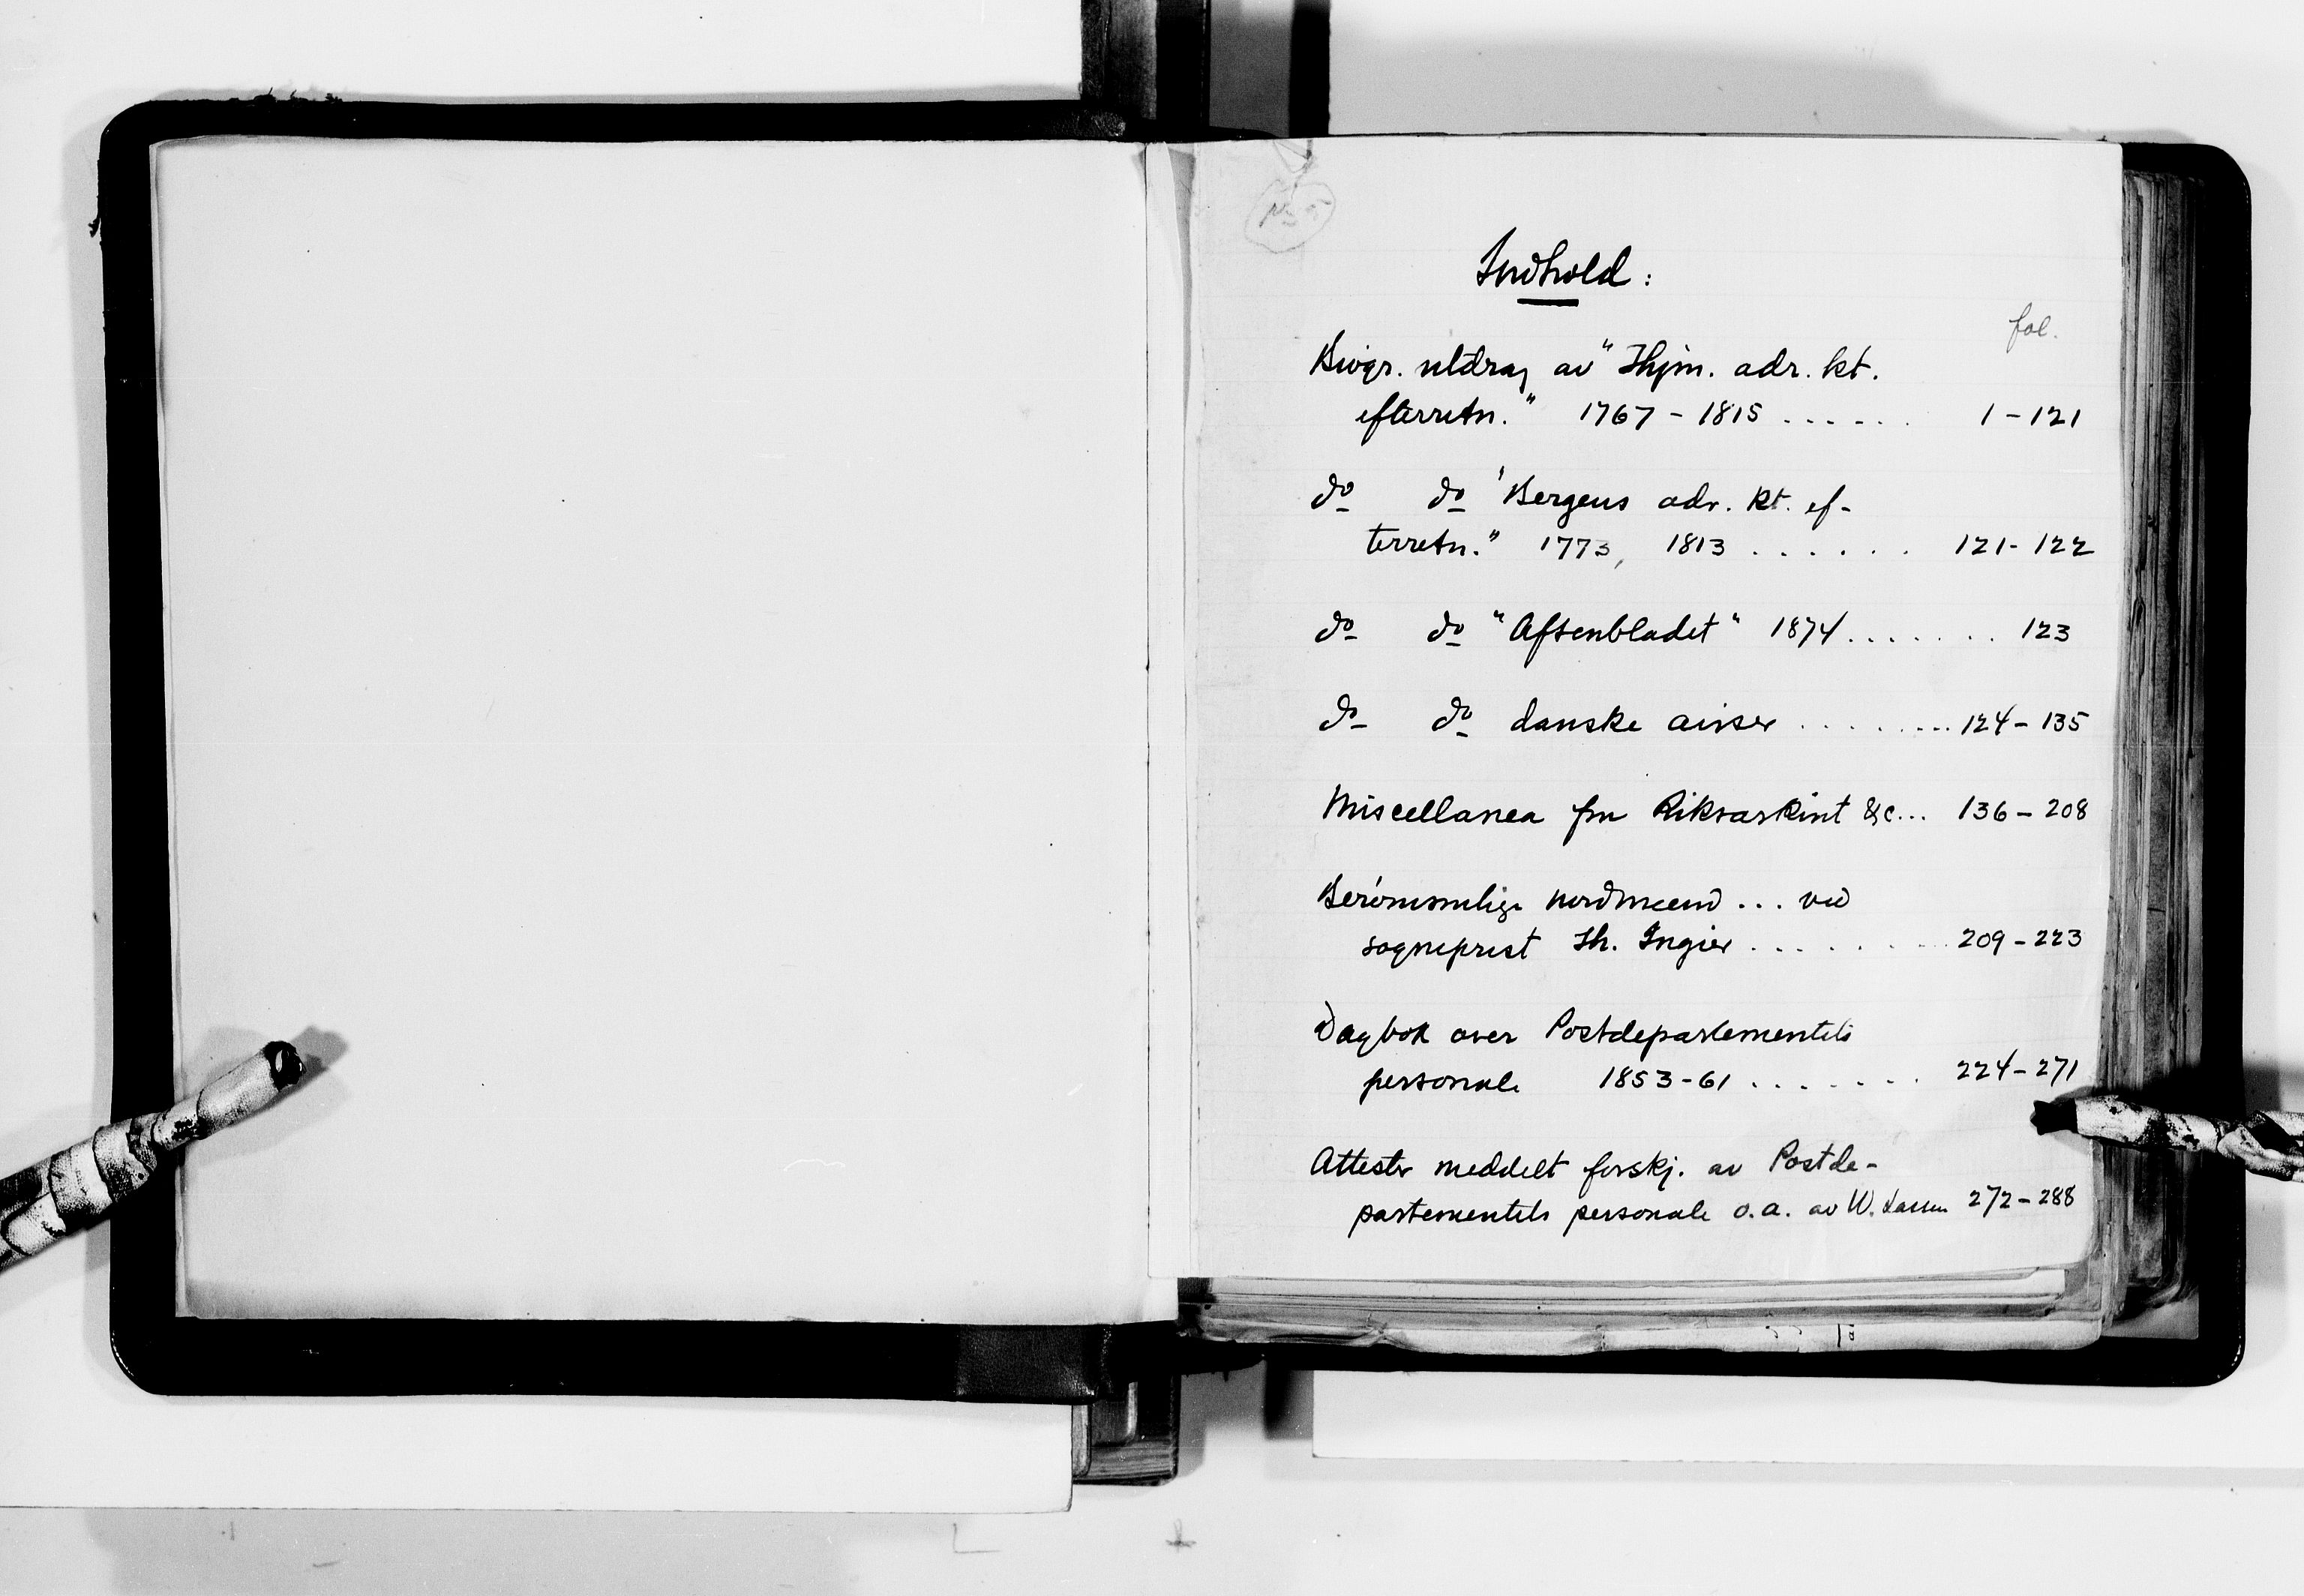 Indhold:
fol.
Biogr. utdrag av "Thjm. adr. kt.
efterretn." 1767 - 1815 ...... 1 - 121
do do "Bergens adr. kt. ef-
terretn." 1773, 1813 ...... 121 - 122
do do "Aftenbladet" 1874 ....... 123
do do danske aviser ........ 124 - 135
Miscellanea fra Riksarkivet &c... 136 - 208
Berömmelige nordmænd ... ved
sogneprest Th. Ingier ........ 209 - 223
Dagbok over Postdepartementets
personale 1853-61 ....... 224 - 271
Attester meddelt forskj. av Postde-
partementets personale o.a. av W. Lassen 272 - 288